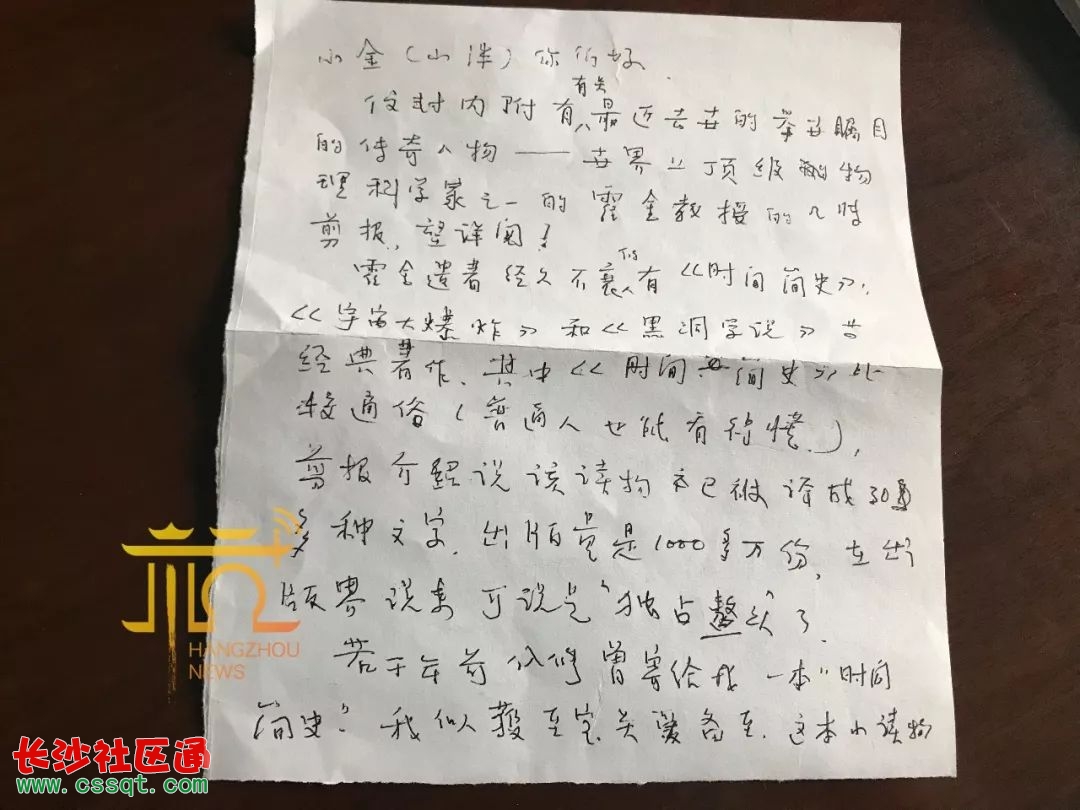 小金（山泮）你们好
仅封内附有有关最近去世的举世瞩目
的传奇人物——世界上顶级物
理科学家之一的霍金教授的几时
剪报，望详阅！
霍金遗著经久不衰的有《时间简史》，
《宇宙大爆炸》和《黑洞学说》等
经典著作，其中《时间简史》比
较通俗（普通人也能有所懂），
剪报介绍说该读物亦已被译成30
多种文字，出版量是1000多万份，在出
版界说来可说是"独占鳌头"了
若干年前你们曾寄给我一本"时间
简史"我似获至宝关爱备至，这本小读物
HANGZHOU
NEWS
长沙社区通
www.cssqt.com